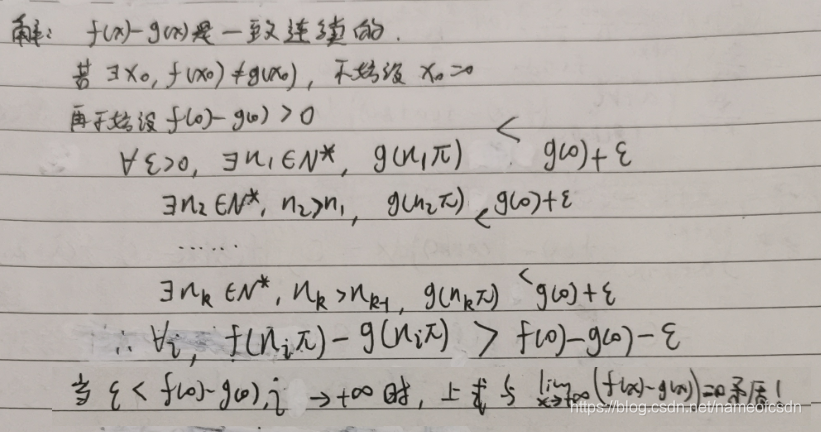 解: f(x)-g(x)是一致连续的.
若 ∃x₀, f(x₀)≠g(x₀), 不妨设 x₀=0
再不妨设 f(0)-g(0)>0
∀ε>0, ∃n₁∈N*, g(n₁π) < g(0)+ε
∃n₂∈N*, n₂>n₁, g(n₂π)<g(0)+ε
......
∃nₖ∈N*, nₖ>nₖ₋₁, g(nₖπ)<g(0)+ε
∴ ∀i, f(nᵢπ)-g(nᵢπ) > f(0)-g(0)-ε
当 ε<f(0)-g(0), i→+∞时, 上式与 lim x→+∞ (f(x)-g(x))=0矛盾!
https://blog.csdn.net/nameofcsdn